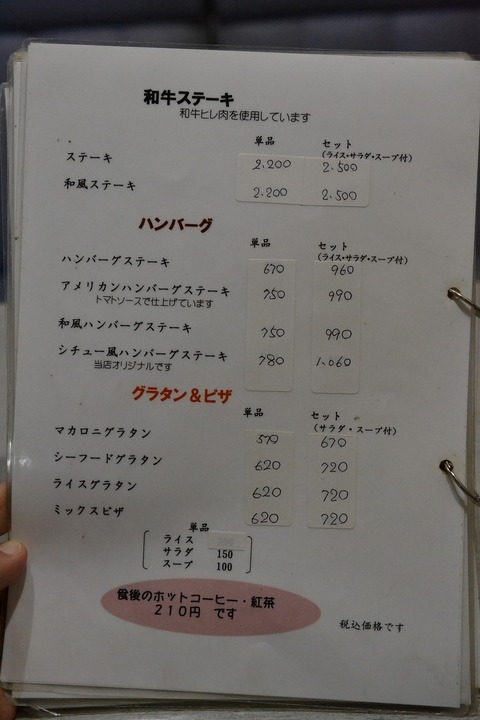 和牛ステーキ
和牛ヒレ肉を使用しています
単品 セット
(ライス・サラダ・スープ付)
ステーキ 2.200 2.500
和風ステーキ 2.200 2.500
ハンバーグ
単品 セット
(ライス・サラダ・スープ付)
ハンバーグステーキ 670 960
アメリカンハンバーグステーキ 750 990
トマトソースで仕上げています
和風ハンバーグステーキ 750 990
シチュー風ハンバーグステーキ 780 1.060
当店オリジナルです
グラタン&ピザ
単品 セット
(サラダ・スープ付)
マカロニグラタン 570 670
シーフードグラタン 620 720
ライスグラタン 620 720
ミックスピザ 620 720
単品
ライス
サラダ 150
スープ 100
食後のホットコーヒー・紅茶
210円 です
税込価格です